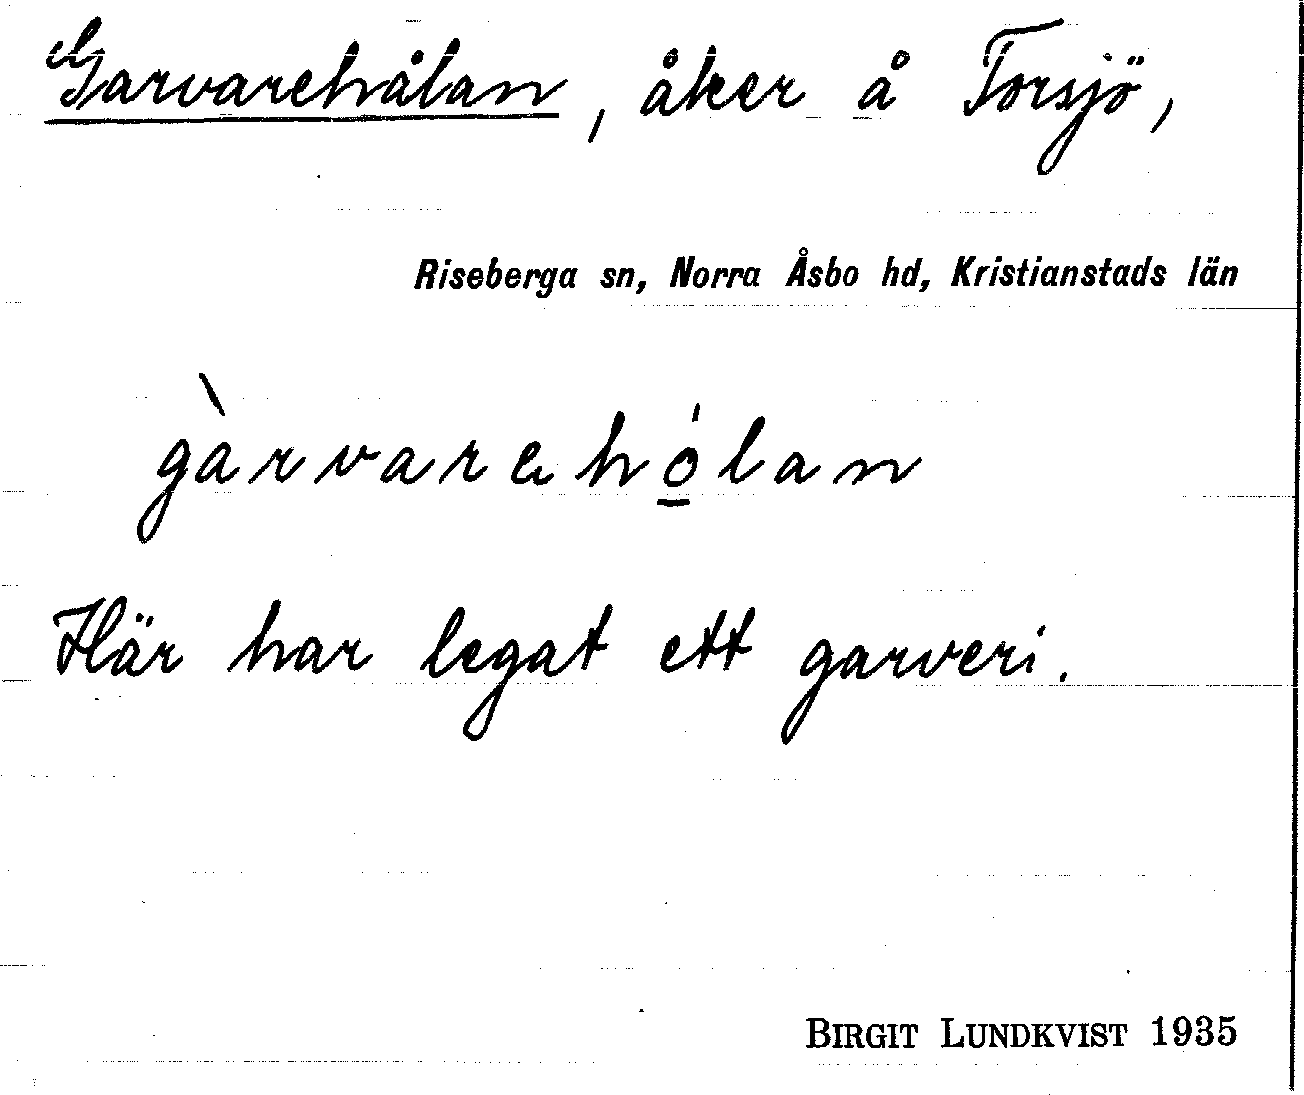 Garvarehålan, åker å Torsjö,
Riseberga sn, Norra Åsbo hd, Kristianstads län
gàrvarehó̲lan
Här har legat ett garveri.
BIRGIT LUNDKVIST 1935